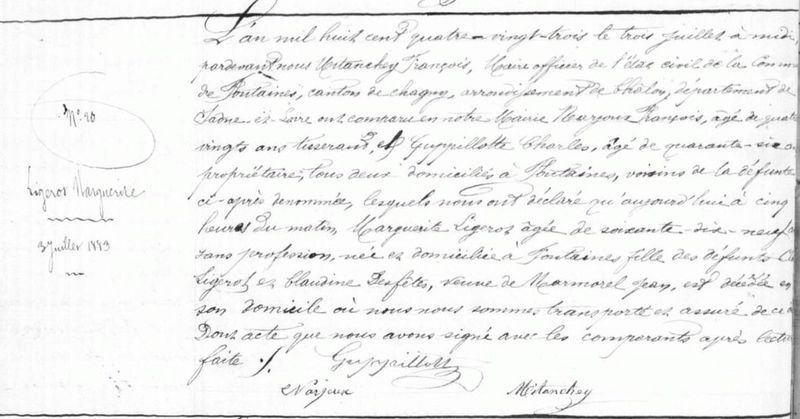 N° 20
Ligerot Marguerite
3 Juillet 1883
L'an mil huit cent quatre-vingt-trois le trois juillet à midi
pardevant nous Mitanchey François, Maire officier de l'état civil de la Comm
de Fontaines, canton de Chagny, arrondissement de Châlon, département de
Saône et Loire ont comparu en notre Mairie Narjoux François, âgé de quatre
vingts ans tisserand, et Guppillotte Charles, âgé de quarante-six
propriétaire, tous deux domiciliés à Fontaines, voisins de la défunte
ci-après dénommée, lesquels nous ont déclaré qu'aujourd'hui à cinq
heures du matin, Marguerite Ligerot âgée de soixante-dix-neuf
sans profession, née et domiciliée à Fontaines fille des défunts
Ligerot et Claudine Desfêtes, veuve de Marmorel Jean, est décédée en
son domicile où nous nous sommes transporté et assuré de
Dont acte que nous avons signé avec les comparants après lectu
faite ./. Guppillott
Narjoux Mitanchey